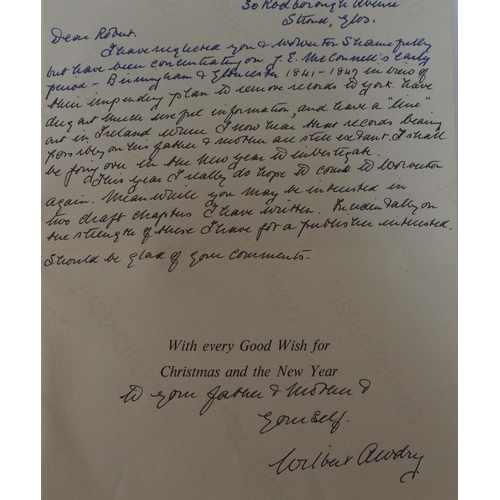 30 Rodborough Avenue
Stroud, Glos.
Dear Robert.
I have neglected you & Wolverton shamefully
but have been concentrating on J. E. McConnell's early
period - Birmingham & Gloucester 1841-1847 in view of
their impending plan to remove records to York. Have
dug out much useful information, and have a "line"
out in Ireland where I now hear that records bearing
possibly on his father & mother are still extant. I shall
be going over in the New Year to investigate.
This year I really do hope to come to Wolverton
again. Meanwhile you may be interested in
two draft chapters I have written. Incidentally on
the strength of these I have got a publisher interested.
Should be glad of your comments-
With every Good Wish for
Christmas and the New Year
to your father & mother &
yourself.
Wilbert Awdry